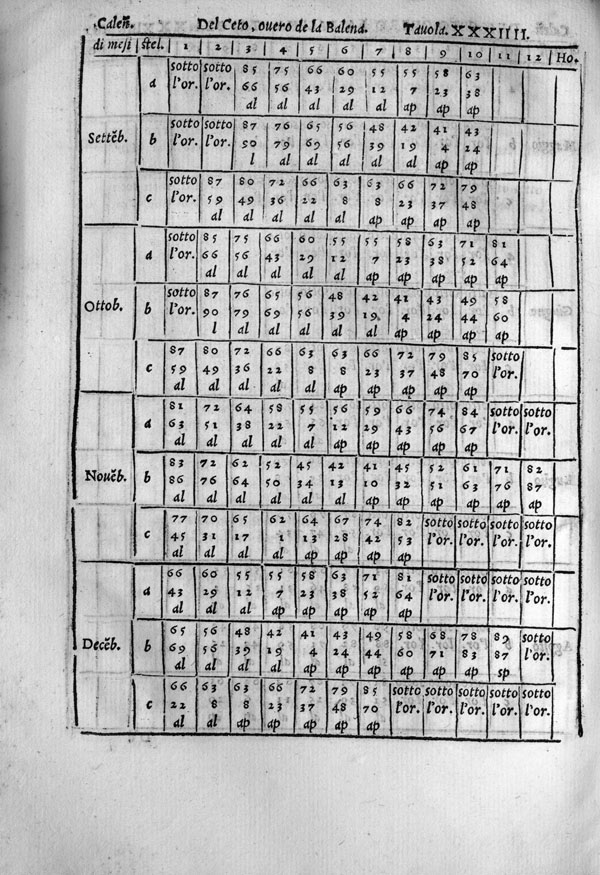 Caleñ. Del Ceto, overo de la Balena. Tavola. XXXIIII.
di mesi stel. 1 2 3 4 5 6 7 8 9 10 11 12 Ho.
sotto sotto 85 75 66 60 55 55 58 63
a l'or. l'or. 66 56 43 29 12 7 23 38
al al al al al ap ap ap
sotto sotto 87 76 65 56 48 42 41 43
Settẽb. b l'or. l'or. 90 79 69 56 39 19 4 24
l al al al al al ap ap
sotto 87 80 72 66 63 63 66 72 79
c l'or. 59 49 36 22 8 8 23 37 48
al al al al al ap ap ap ap
sotto 85 75 66 60 55 55 58 63 71 81
a l'or. 66 56 43 29 12 7 23 38 52 64
al al al al al ap ap ap ap ap
sotto 87 76 65 56 48 42 41 43 49 58
Ottob. b l'or. 90 79 69 56 39 19 4 24 44 60
l al al al al al ap ap ap ap
87 80 72 66 63 63 66 72 79 85 sotto
c 59 49 36 22 8 8 23 37 48 70 l'or.
al al al al al ap ap ap ap ap
81 72 64 58 55 56 59 66 74 84 sotto sotto
a 63 51 38 22 7 12 29 43 56 67 l'or. l'or.
al al al al al ap ap ap ap ap
83 72 62 52 45 42 41 45 52 61 71 82
Nouẽb. b 86 76 64 50 34 13 10 32 51 63 76 87
al al al al al al ap ap ap ap ap ap
77 70 65 62 64 67 74 82 sotto sotto sotto sotto
c 45 31 17 1 13 28 42 53 l'or. l'or. l'or. l'or.
al al al al ap ap ap ap
66 60 55 55 58 63 71 81 sotto sotto sotto sotto
a 43 29 12 7 23 38 52 64 l'or. l'or. l'or. l'or.
al al al ap ap ap ap ap
65 56 48 42 41 43 49 58 68 78 89 sotto
Decẽb. b 69 56 39 19 4 24 44 60 71 83 87 l'or.
al al al al ap ap ap ap ap ap sp
66 63 63 66 72 79 85 sotto sotto sotto sotto sotto
c 22 8 8 23 37 48 70 l'or. l'or. l'or. l'or. l'or.
al al ap ap ap ap ap